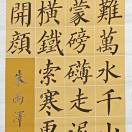 難萬水千山
蒙磅礴走泥
橫鐵索寒更
開顏
朱雨澤